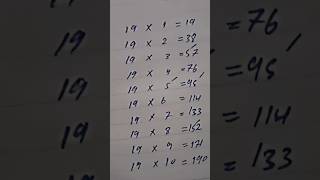 19 × 1 = 19
19 × 2 = 38
19 × 3 = 57
19 × 4 = 76
19 × 5 = 95
19 × 6 = 114
19 × 7 = 133
19 × 8 = 152
19 × 9 = 171
19 × 10 = 190